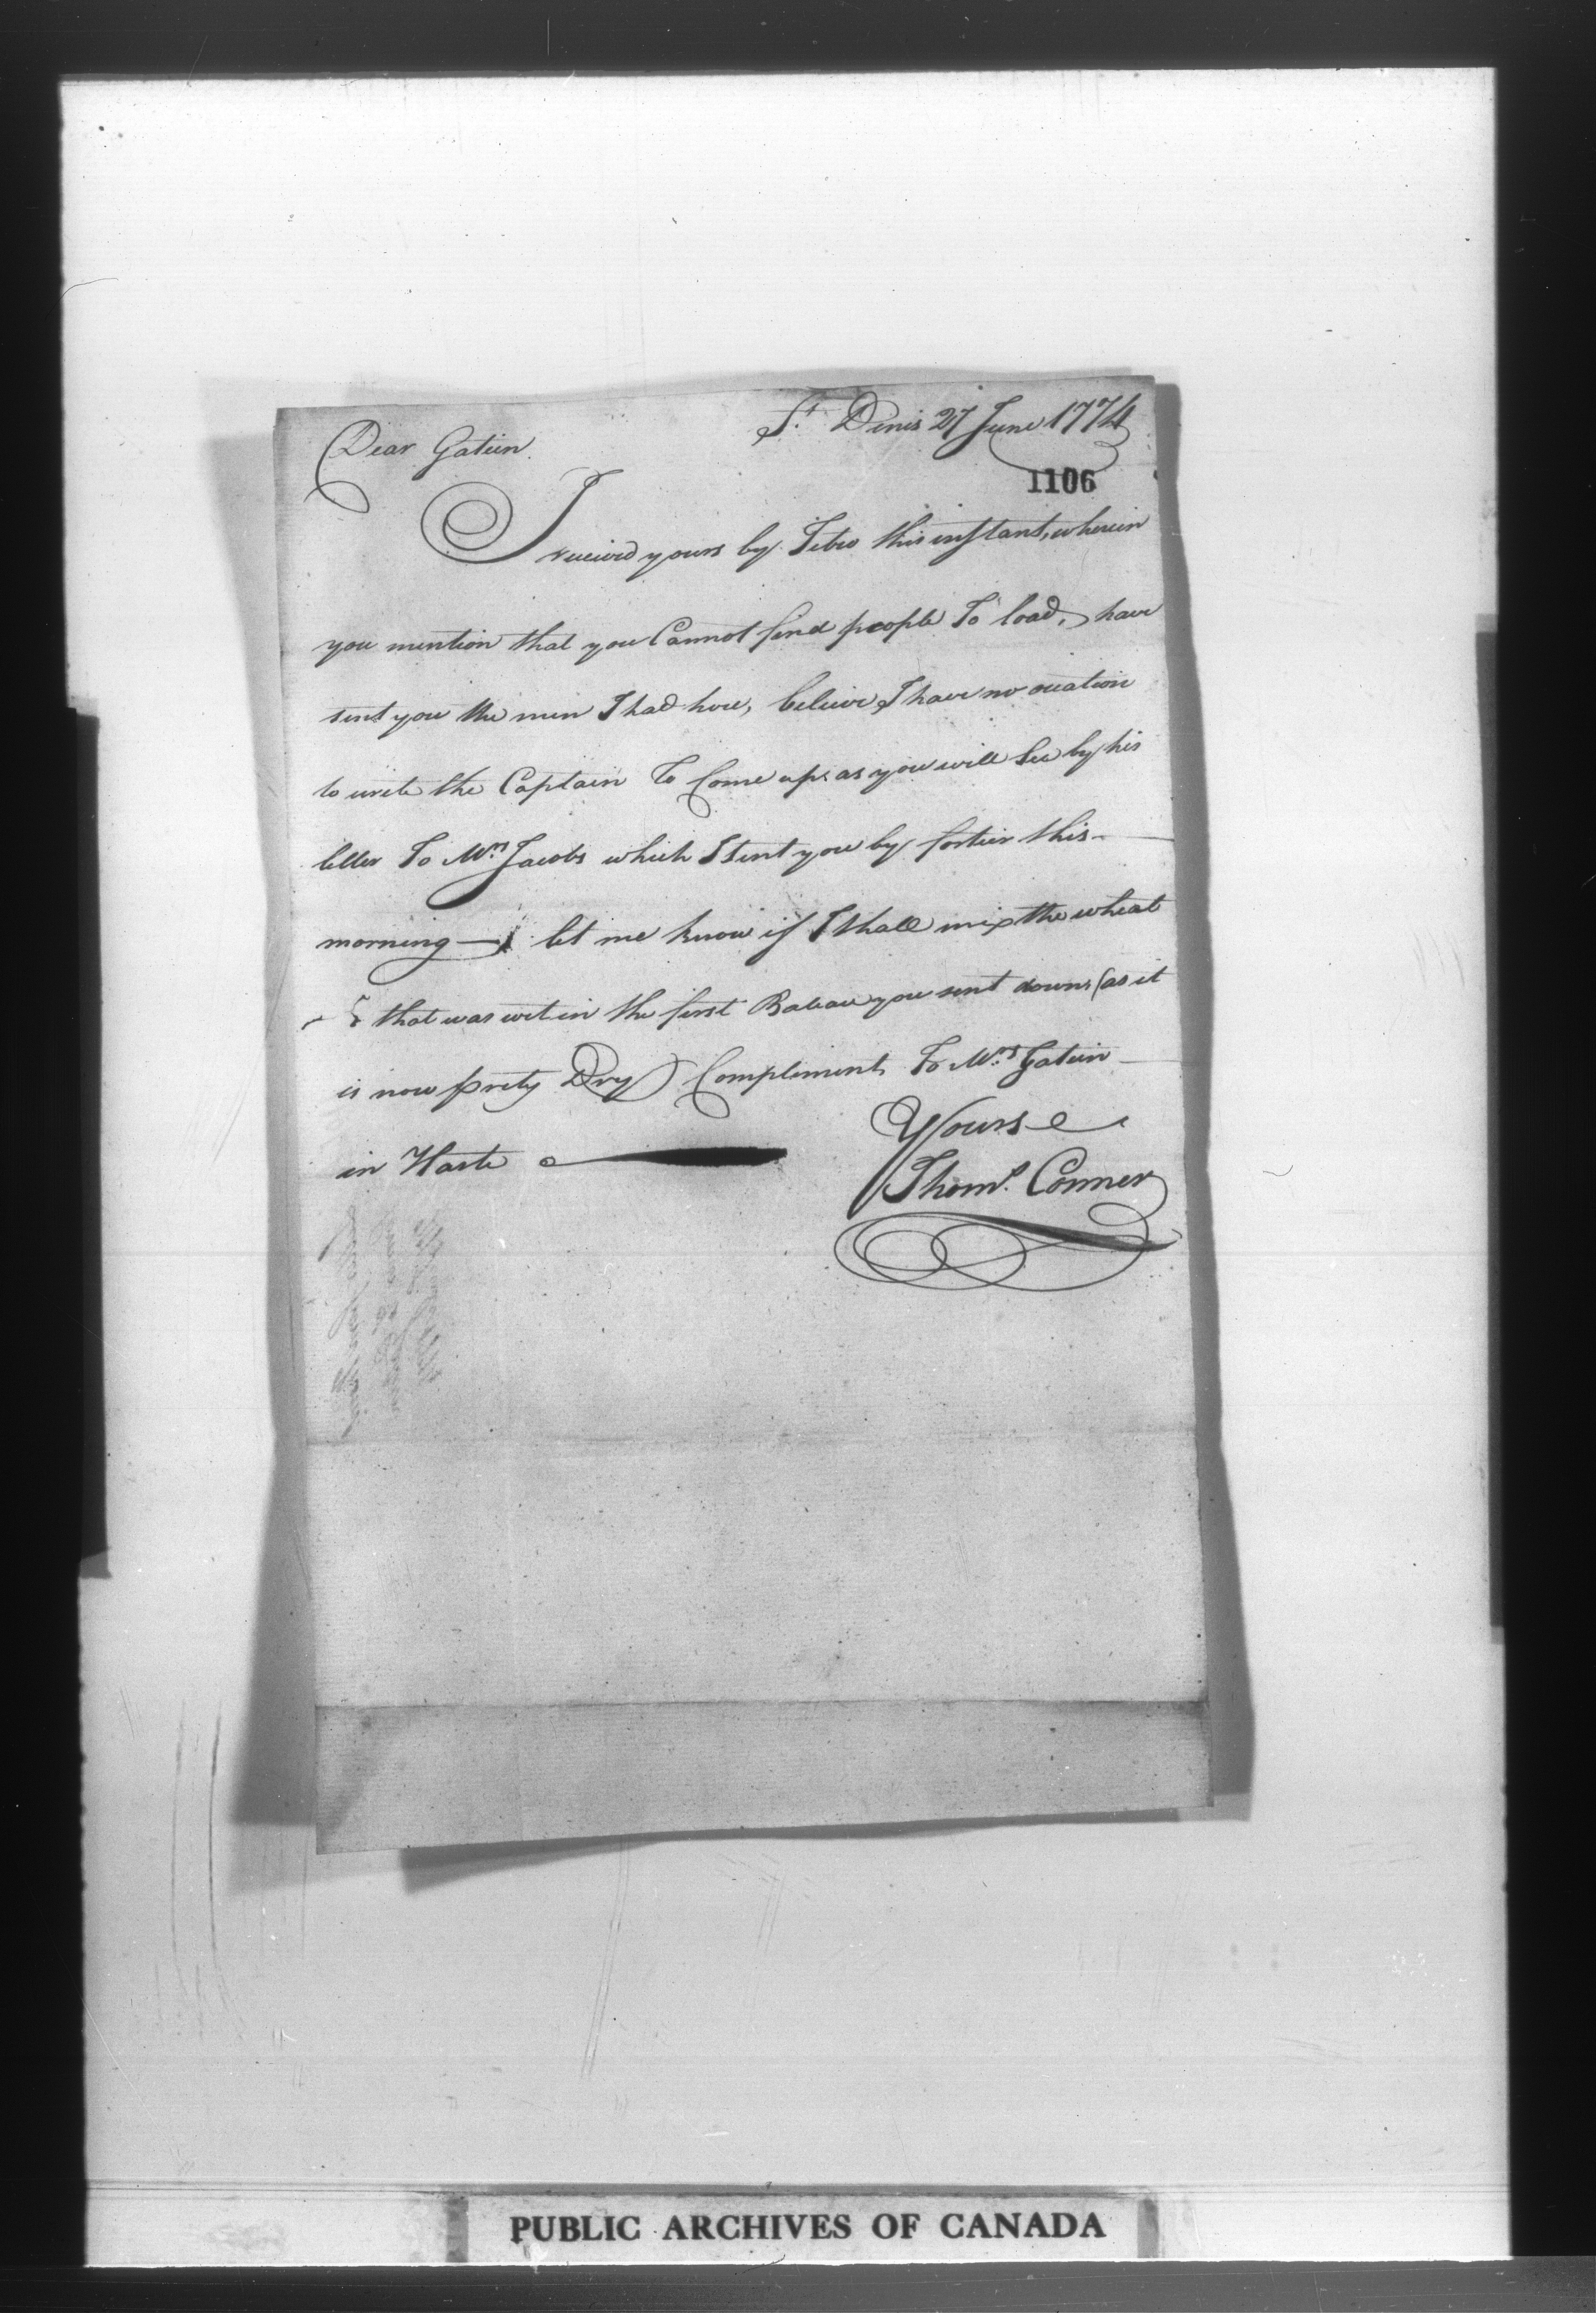 St. Denis 27 June 1774
Dear Gatien.
1106
I received yours by Tibo this instant, wherein
you mention that you Cannot find people To load, have
sent you the men I had here, believe I have no ocation
to write the Captain To Come up, as you will See by his
letter To Mrs. Jacobs which I sent you by fortier this
morning — let me know if I shall mix the wheat
that was wet in the first Bateau you sent down, (as it
is now prety Dry) Compliments To Mrs. Gatien
in Haste
Yours
Thoms. Conner
PUBLIC ARCHIVES OF CANADA